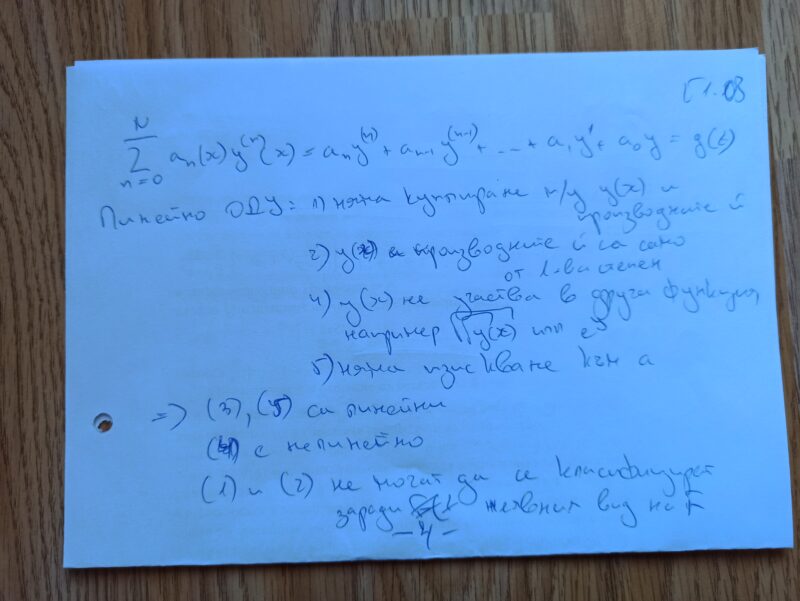 [1.03
N
∑ aₙ(x) y⁽ⁿ⁾(x) = aₙy⁽ⁿ⁾ + aₙ₋₁ y⁽ⁿ⁻¹⁾ + ... + a₁y' + a₀y = g(t)
n=0
Линейно ОДУ: 1) няма купълиране м/у y(x) и
производните й
2) y(x) и производните й са само
от 1-ва степен
4) y(x) не участва в друга функция,
например √y(x) или eʸ
5) няма изискване към a
=> (3), (5) са линейни
(4) е нелинейно
(1) и (2) не могат да се класифицират
заради вид на F
- 4 -